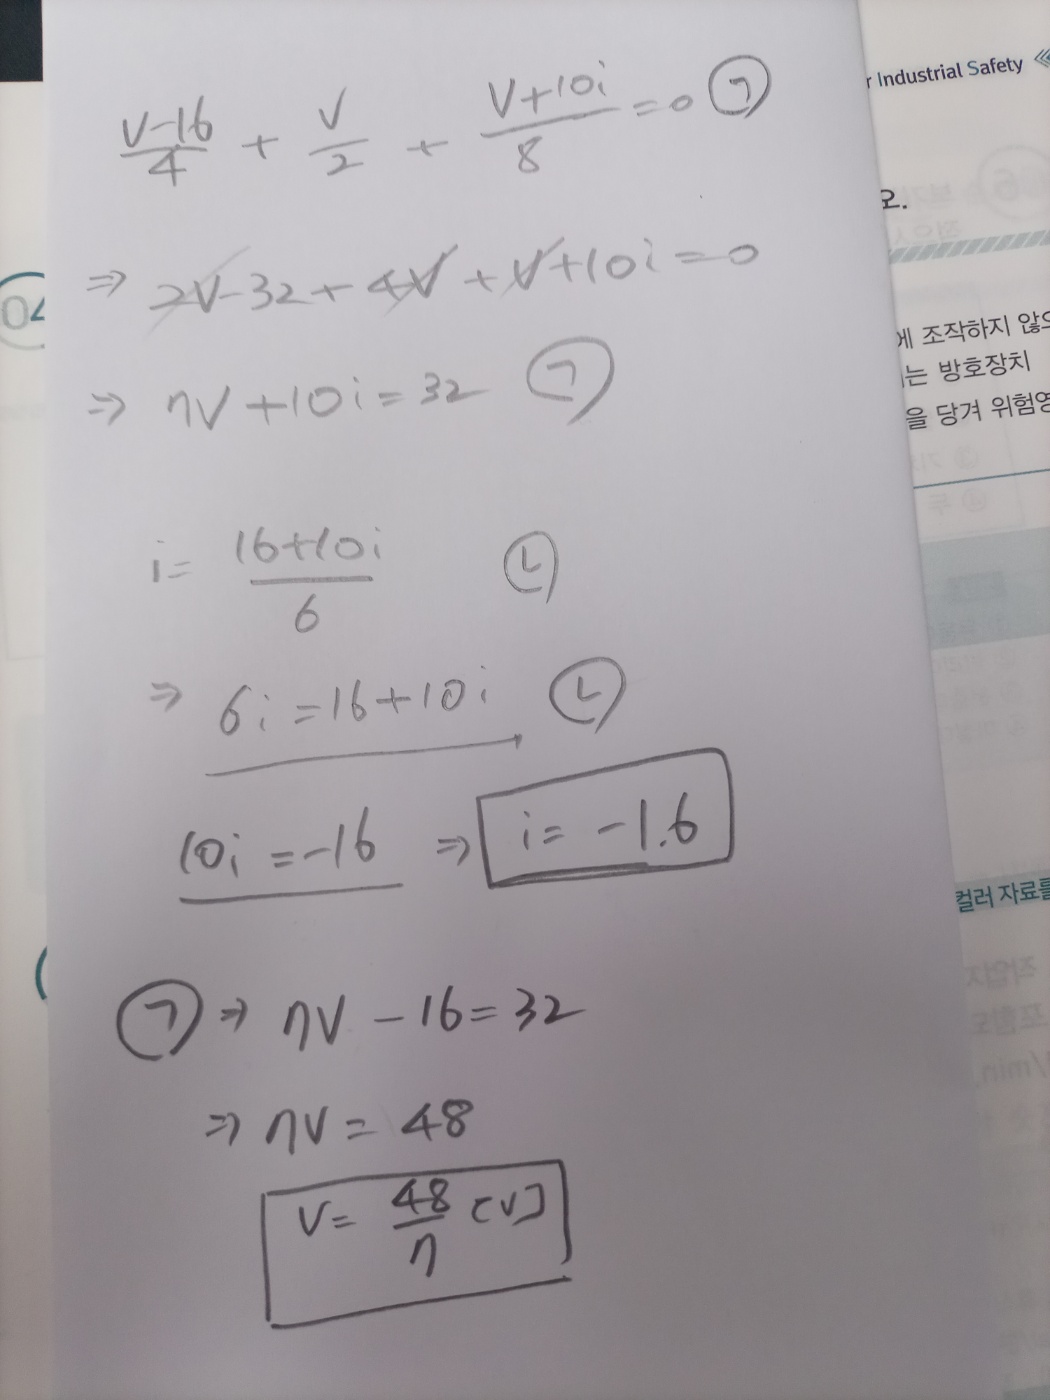 r Industrial Safety
(V-16)/4 + V/2 + (V+10i)/8 = 0 ㉠
오.
⇒ 2V-32+4V+V+10i=0
04
에 조작하지 않으
는 방호장치
⇒ 7V+10i=32 ㉠
을 당겨 위험영
i= (16+10i)/6 ㉡
⇒ 6i=16+10i ㉡
10i=-16 ⇒ i=-1.6
컬러 자료를
㉠ ⇒ 7V-16=32
⇒ 7V=48
V= 48/7 [V]